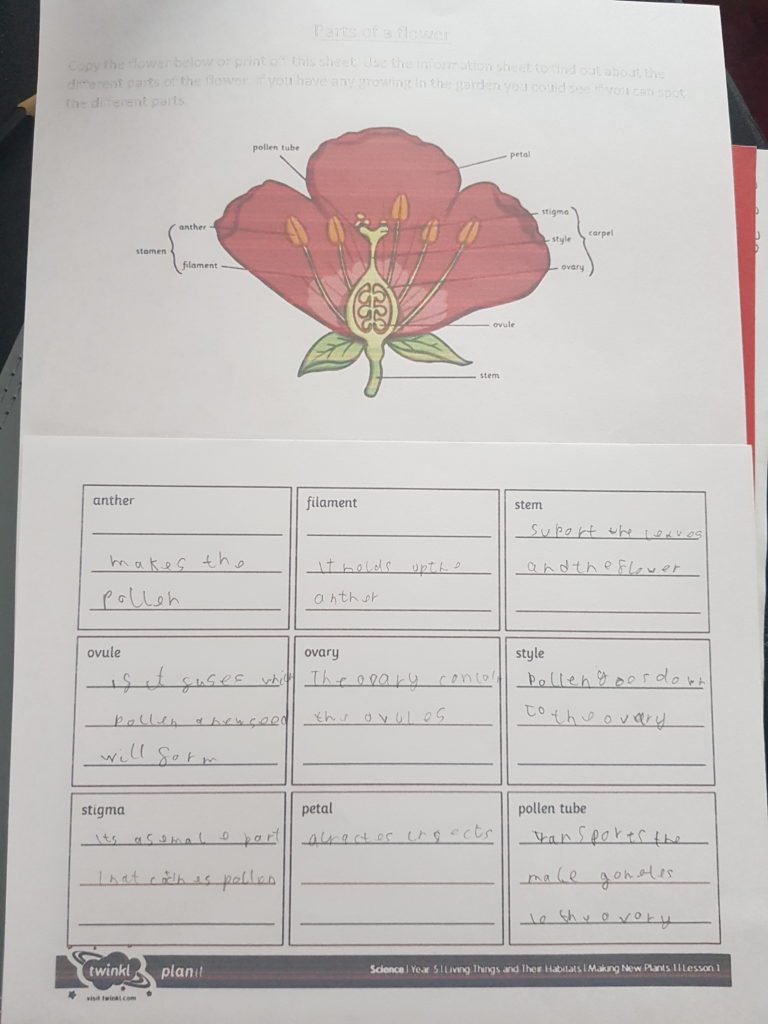 Parts of a flower
Copy the flower below or print off this sheet. Use the information sheet to find out about the
different parts of the flower. If you have any growing in the garden you could see if you can spot
the different parts.
pollen tube
petal
anther
stamen
filament
stigma
style
carpel
ovary
ovule
stem
anther
makes the
pollen
filament
it holds up the
anther
stem
suport the leaves
and the flower
ovule
is it fuses with
pollen a new seed
will form
ovary
The ovary contain
the ovules
style
pollen goes down
to the ovary
stigma
its a female part
that catches pollen
petal
atractes insects
pollen tube
transports the
male
to the ovary
twinkl
planit
visit twinkl.com
Science | Year 5 | Living Things and Their Habitats | Making New Plants 1 | Lesson 1